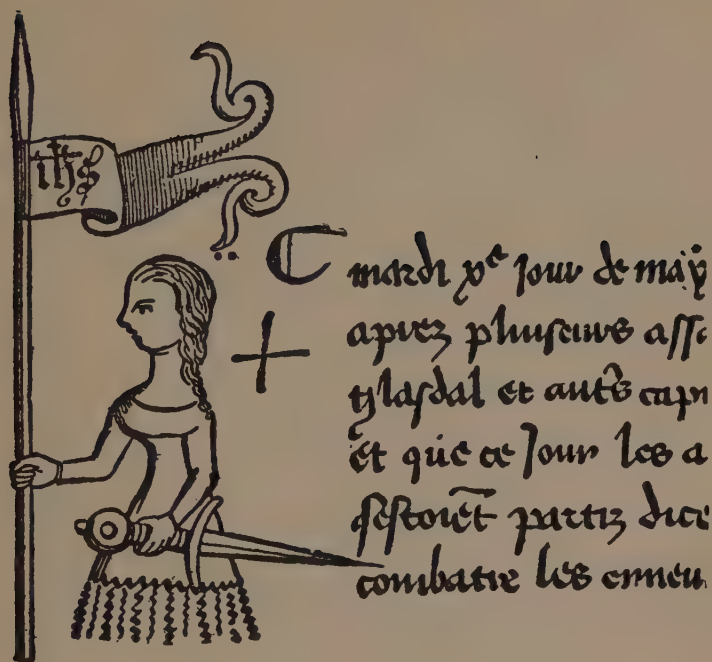 ihs
C
mardi xᵉ Jour de may
aprez pluseurs ass
glasdal et autˢ capi
Et que ce Jour les a
sestoiẽt partiz dice
combatre les ennem